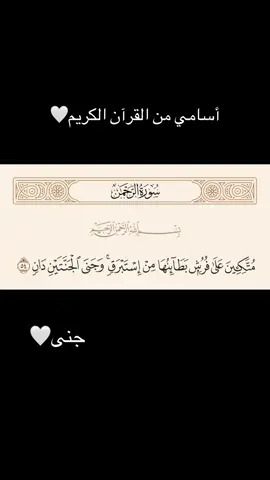 أسامي من القرآن الكريم🤍
سُورَةُ الرَّحْمَٰن
بِسْمِ اللَّهِ الرَّحْمَٰنِ الرَّحِيمِ
مُتَّكِـِٔينَ عَلَىٰ فُرُشٍۭ بَطَآئِنُهَا مِنْ إِسْتَبْرَقٍۚ وَجَنَى ٱلْجَنَّتَيْنِ دَانٍ ٥٤
جنى🤍